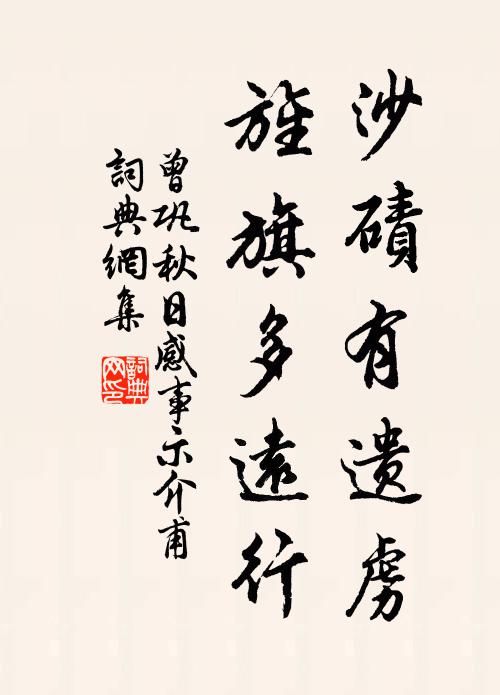 沙磧有遺虜
旌旗多遠行
曾巩秋日感事示介甫
詞典網集
詞典网印